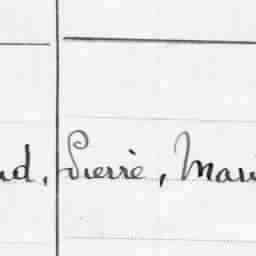 nd, Pierre, Mari